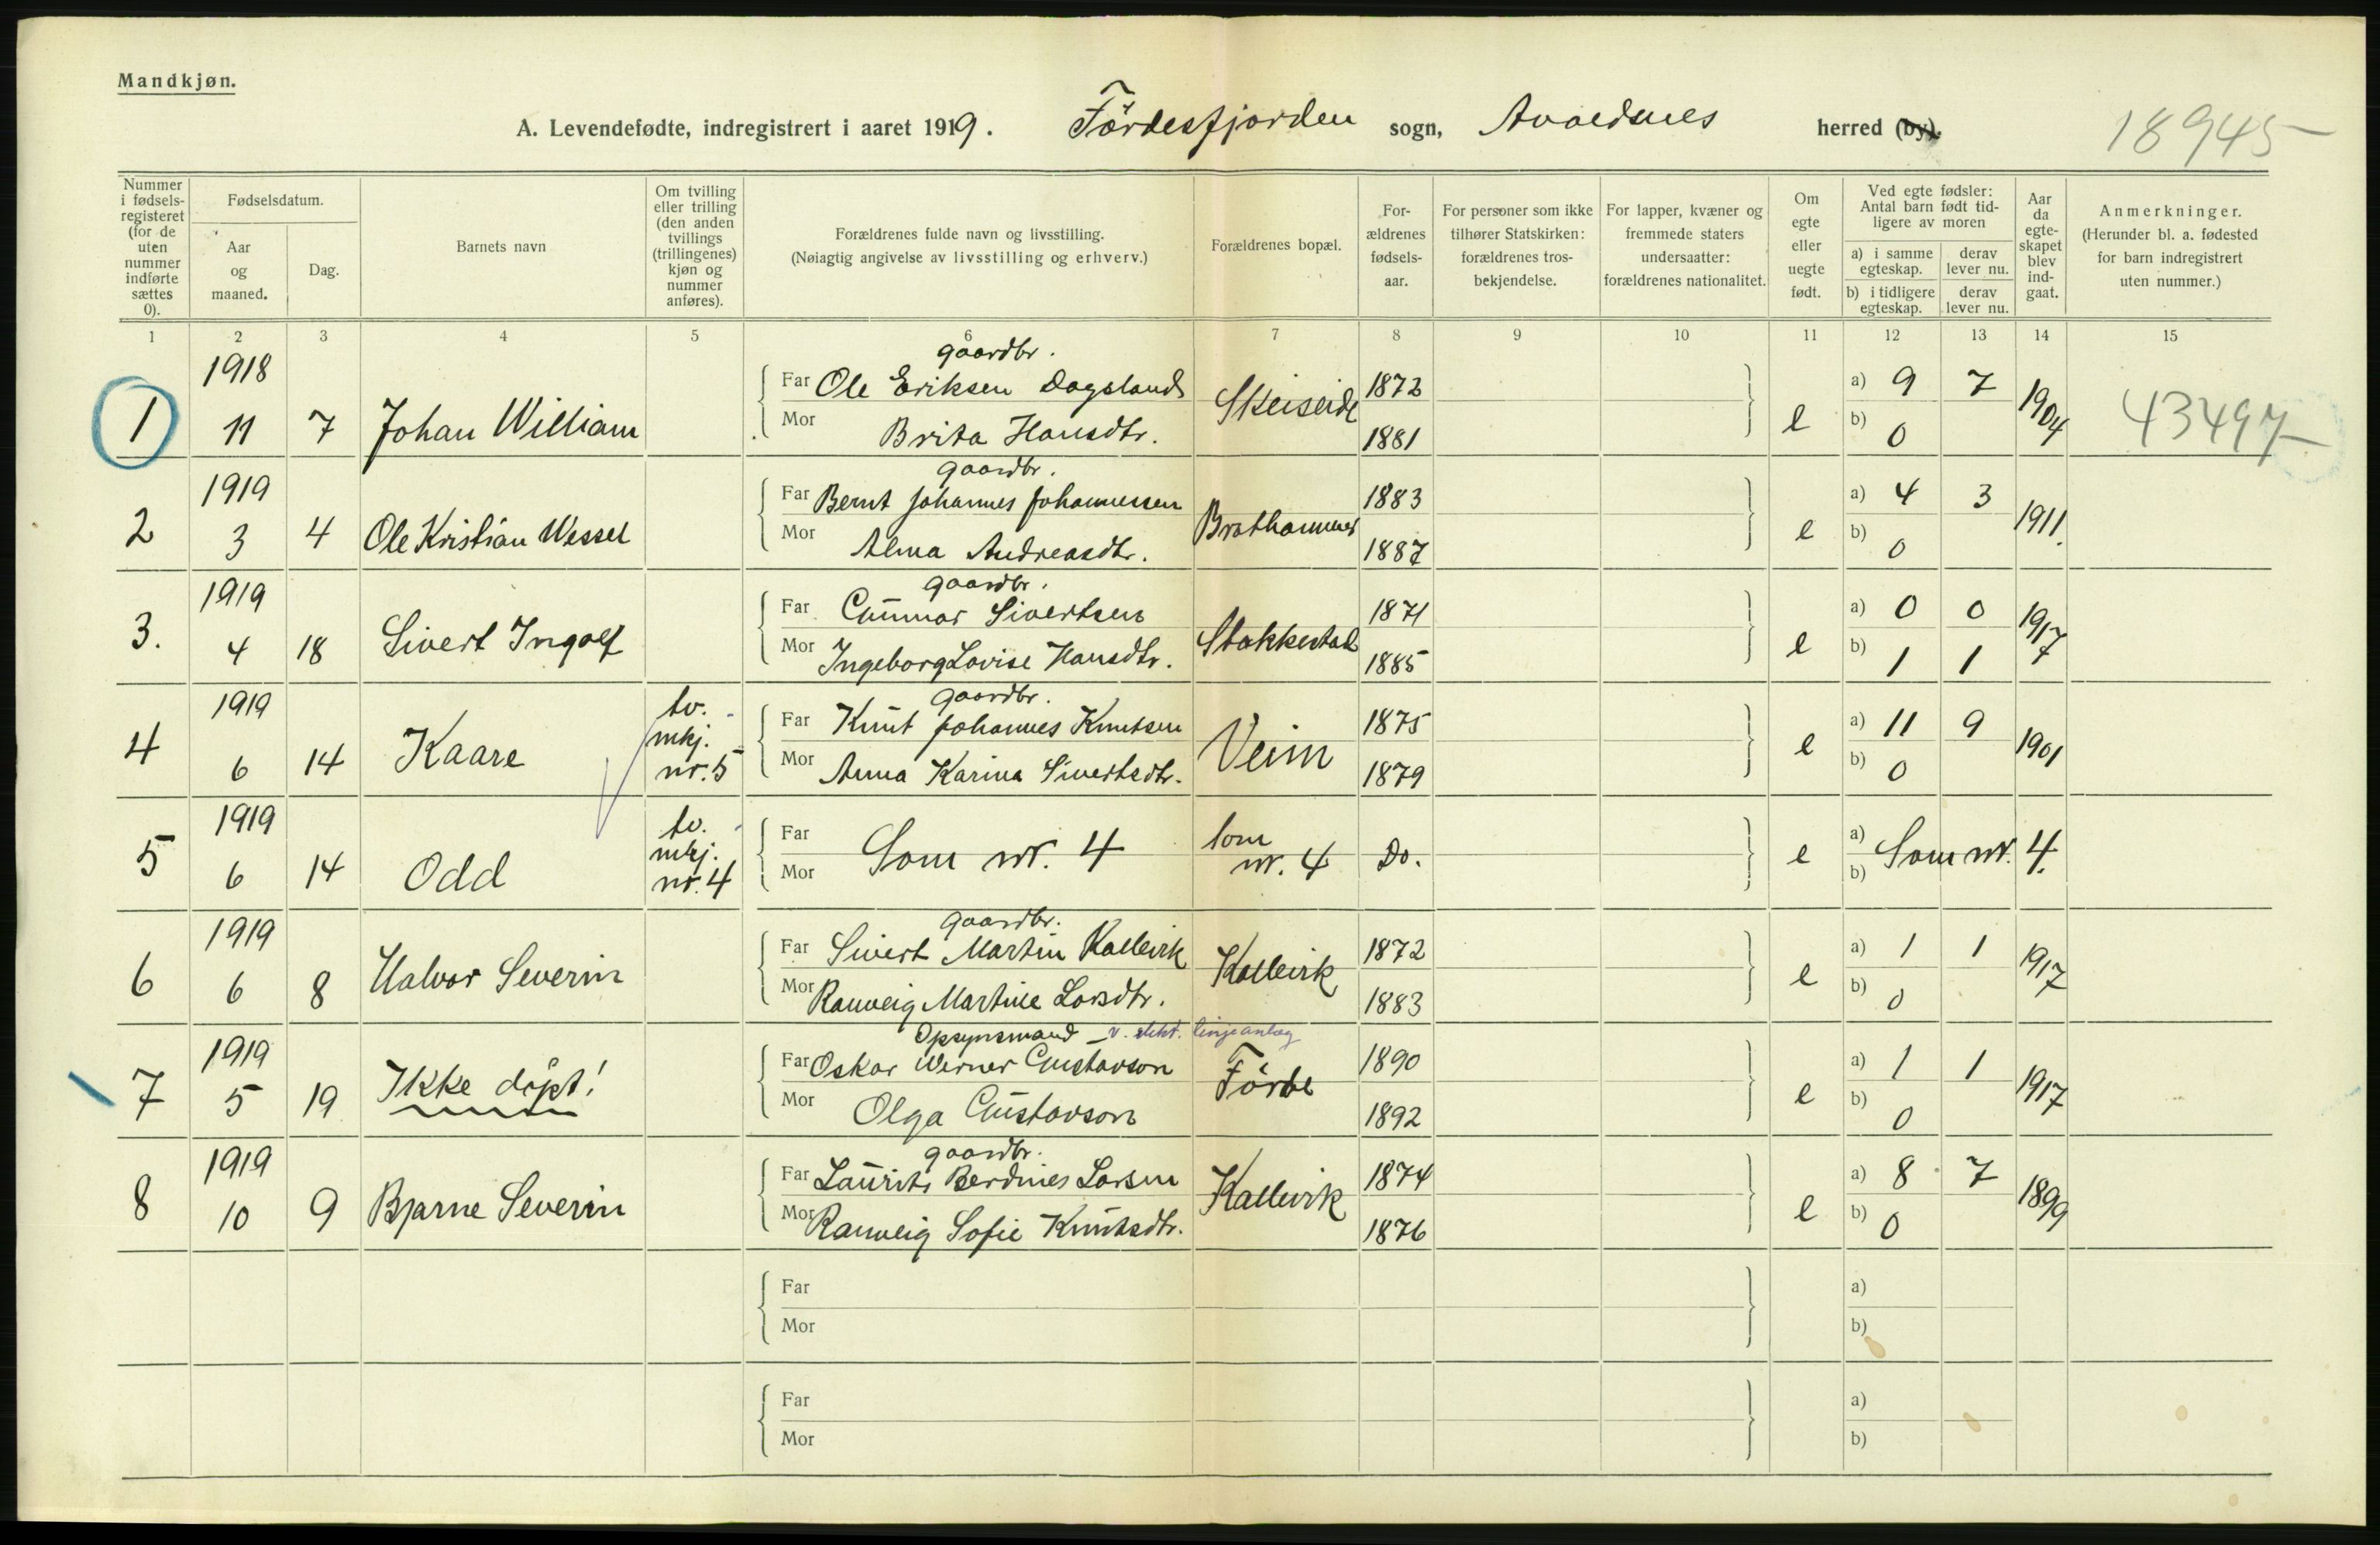 Mandkjøn.
A. Levendefødte, indregistrert i aaret 1919. Fördesfjorden sogn, Avaldsnes herred (by).
18945
Nummer i fødsels-registeret (for de uten nummer indførte sættes 0).
Fødselsdatum.
Aar og maaned.
Dag.
Barnets navn
Om tvilling eller trilling (den anden tvillings (trillingenes) kjøn og nummer anføres).
Forældrenes fulde navn og livsstilling.
(Nøiagtig angivelse av livsstilling og erhverv.)
Forældrenes bopæl.
For-ældrenes fødsels-aar.
For personer som ikke tilhører Statskirken: forældrenes tros-bekjendelse.
For lapper, kvæner og fremmede staters undersaatter: forældrenes nationalitet.
Om egte eller uegte født.
Ved egte fødsler: Antal barn født tid-ligere av moren
a) i samme egteskap.
derav lever nu.
b) i tidligere egteskap.
derav lever nu.
Aar da egte-skapet blev ind-gaat.
Anmerkninger.
(Herunder bl. a. fødested for barn indregistrert uten nummer.)
1 2 3 4 5 6 7 8 9 10 11 12 13 14 15
gaardbr.
1918 Far Ole Eriksen Dagsland 1872 a) 9 7
1 11 7 Johan William Mor Brita Hansdtr. Skeiseid 1881 e b) 0 1904 43497
gaardbr.
1919 Far Bernt Johannes Johannessen 1883 a) 4 3
2 3 4 Ole Kristian Wessel Mor Alma Andreasdtr. Brathammer 1887 e b) 0 1911.
gaardbr.
1919 Far Gunnar Sivertsen 1871 a) 0 0
3. 4 18 Sivert Ingolf Mor Ingeborg Lovise Hansdtr. Stakkestad 1885 e b) 1 1 1917
gaardbr.
1919 tv. mkj. nr. 5 Far Knut Johannes Knutsen 1875 a) 11 9
4 6 14 Kaare Mor Anna Karina Sivertsdtr. Veim 1879 e b) 0 1901
1919 tv. mkj. nr. 4 Far
5 6 14 Odd Mor Som nr. 4 Som nr. 4 Do. e a) b) Som nr. 4.
gaardbr.
1919 Far Sivert Martin Kallevik 1872 a) 1 1
6 6 8 Halvor Severin Mor Ranveig Martine Larsdtr. Kallevik 1883 e b) 0 1917
Opsynsmand v. elekt. linjeanlæg
1919 Far Oskar Werner Gustavson 1890 a) 1 1
7 5 19 Ikke döpt! Mor Olga Gustavson Förde 1892 e b) 0 1917
gaardbr.
1919 Far Laurits Berdines Larsen 1874 a) 8 7
8 10 9 Bjarne Severin Mor Ranveig Sofie Knutsdtr. Kallevik 1876 e b) 0 1899
Far a)
Mor b)
Far a)
Mor b)